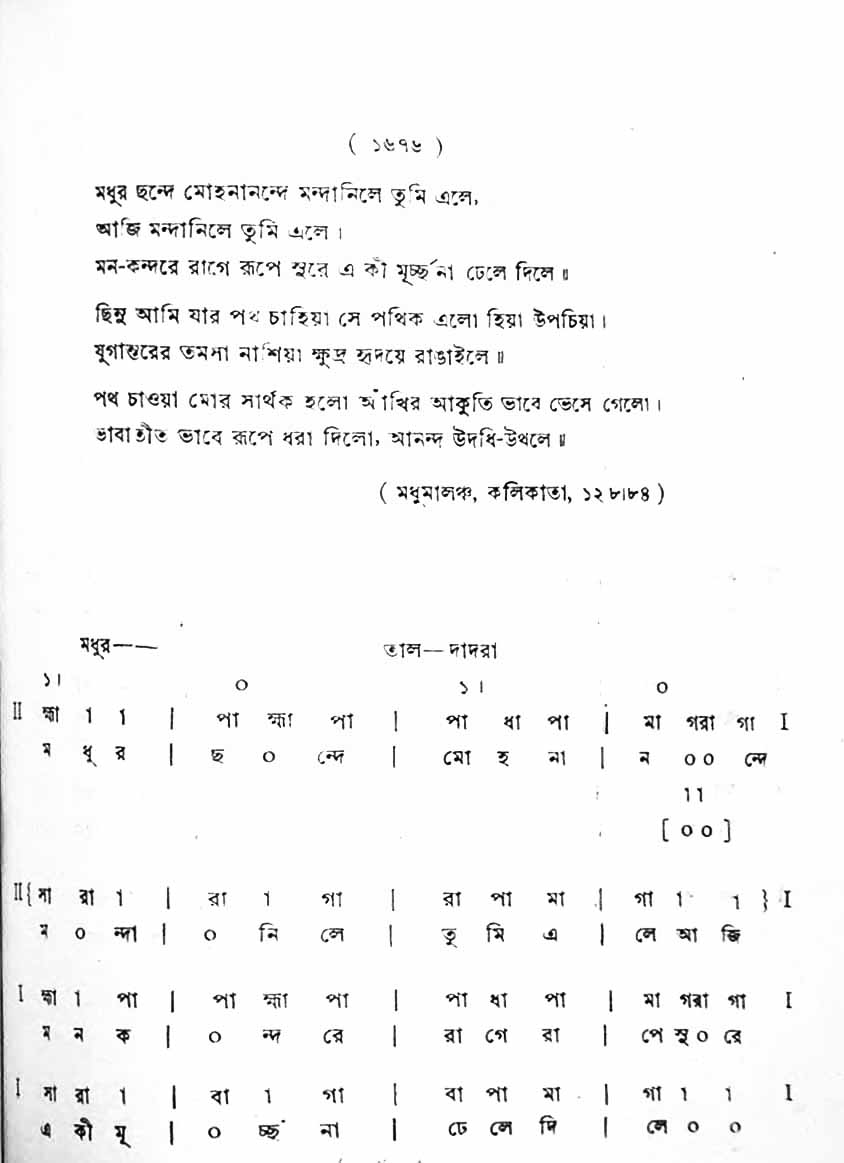 ( ১৬৭৬ )
মধুর ছন্দে মোহনানন্দে মন্দানিলে তুমি এলে,
আজি মন্দানিলে তুমি এলে ।
মন-কন্দরে রাগে রূপে সুরে এ কী মূর্চ্ছনা ঢেলে দিলে ॥
ছিনু আমি যার পথ চাহিয়া সে পথিক এলো হিয়া উপচিয়া ।
যুগান্তরের তমসা নাশিয়া ক্ষুদ্র হৃদয়ে রাঙাইলে ॥
পথ চাওয়া মোর সার্থক হলো আঁখির আকুতি ভাবে ভেসে গেলো ।
ভাবাতীত ভাবে রূপে ধরা দিলো, আনন্দ উদধি-উথলে ॥
( মধুমালঞ্চ, কলিকাতা, ১২৮৮৪ )
মধুর—— তাল—দাদরা
১। ০ ১। ০
II হ্মা া া | পা হ্মা পা | পা ধা পা | মা গরা গা I
ম ধূ র | ছ ০ ন্দে | মো হ না | ন ০০ ন্দে
া া
[ ০০ ]
II { সা রা া | রা া গা | রা পা মা | গা া া } I
ম ০ ন্দা | ০ নি লে | তু মি এ | লে আ জি
I হ্মা া পা | পা হ্মা পা | পা ধা পা | মা গরা গা I
ম ন ক | ০ ন্দ রে | রা গে রা | পে সু০ রে
I সা রা া | বা া গা | বা পা মা | গা া া I
এ কী মূ | ০ চ্ছ না | ঢে লে দি | লে ০ ০